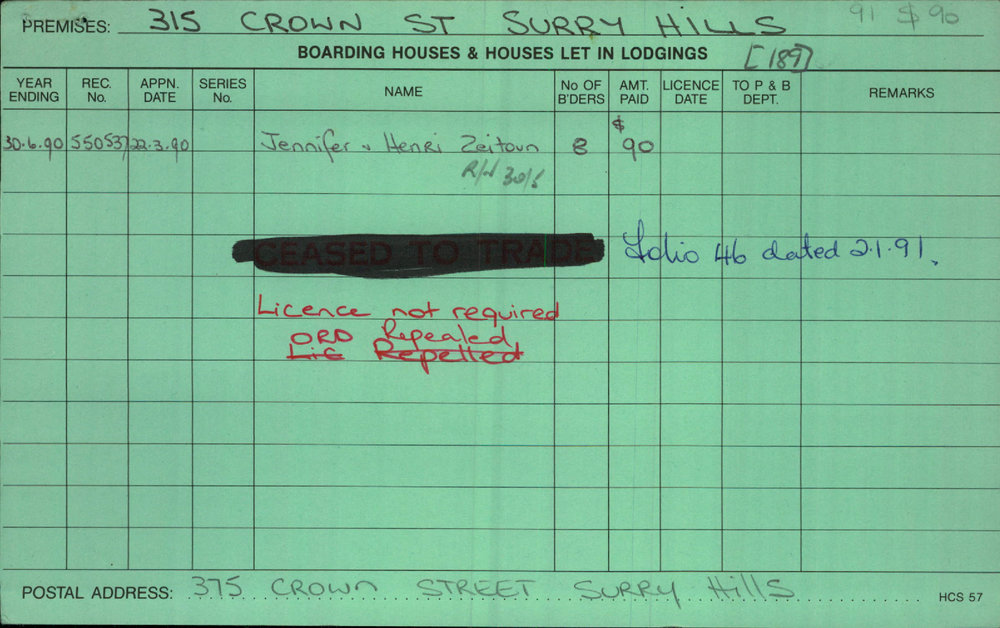 PREMISES: 315 CROWN ST SURRY HILLS 91 $ 90
BOARDING HOUSES & HOUSES LET IN LODGINGS [189]
YEAR ENDING REC. No. APPN. DATE SERIES No. NAME No OF B'DERS AMT. PAID LICENCE DATE TO P & B DEPT. REMARKS
30.6.90 550537 22.3.90 Jennifer & Henri Zeitoun 8 $ 90
R/N 30/5
CEASED TO TRADE Folio 46 dated 2.1.91.
Licence not required
ORD Repealed
Lic Repelled
POSTAL ADDRESS: 375 CROWN STREET SURRY HillS HCS 57